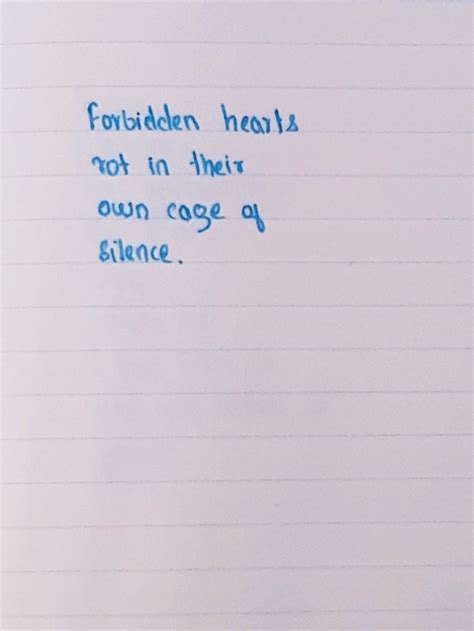 Forbidden hearts
rot in their
own cage of
silence.